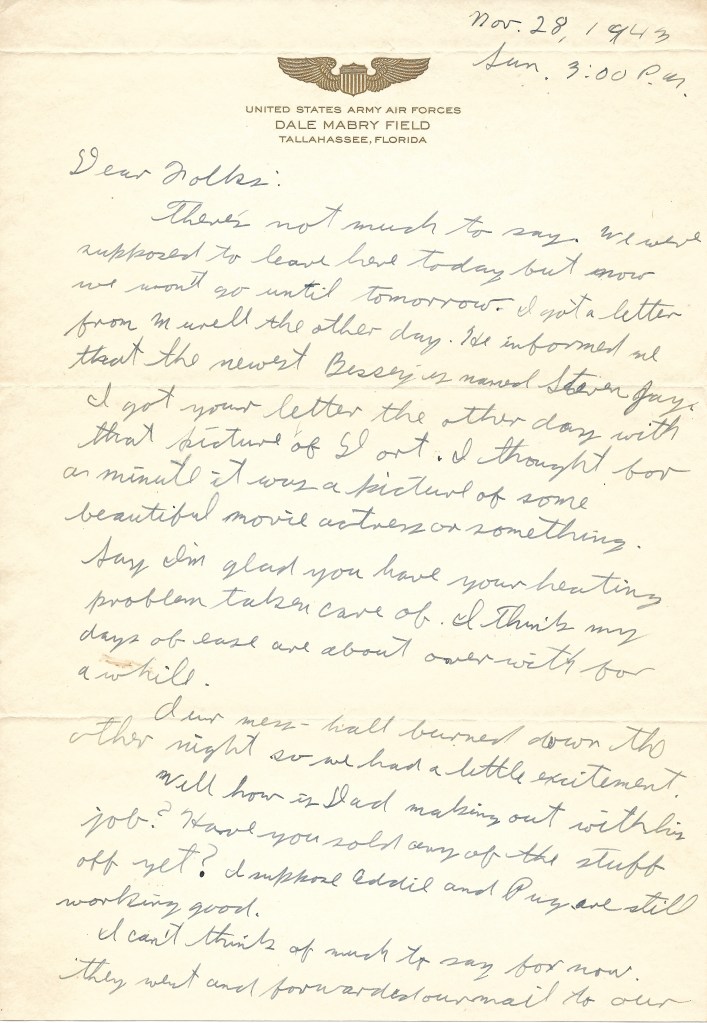 Nov. 28, 1943
Sun. 3:00 P.M.
UNITED STATES ARMY AIR FORCES
DALE MABRY FIELD
TALLAHASSEE, FLORIDA
Dear Folks:
There's not much to say. We were
supposed to leave here today but now
we won't go until tomorrow. I got a letter
from Murell the other day. He informed me
that the newest is named Steven Jay.
I got your letter the other day with
that picture of Dort. I thought for
a minute it was a picture of some
beautiful movie actress or something.
Say I'm glad you have your heating
problem taken care of. I think my
days of ease are about over with for
a while.
Our mess-hall burned down the
other night so we had a little excitement.
Well how is Dad making out with his
job? Have you sold any of the stuff
off yet? I suppose Eddie and Pug are still
working good.
I can't think of much to say for now.
they went and forwarded our mail to our